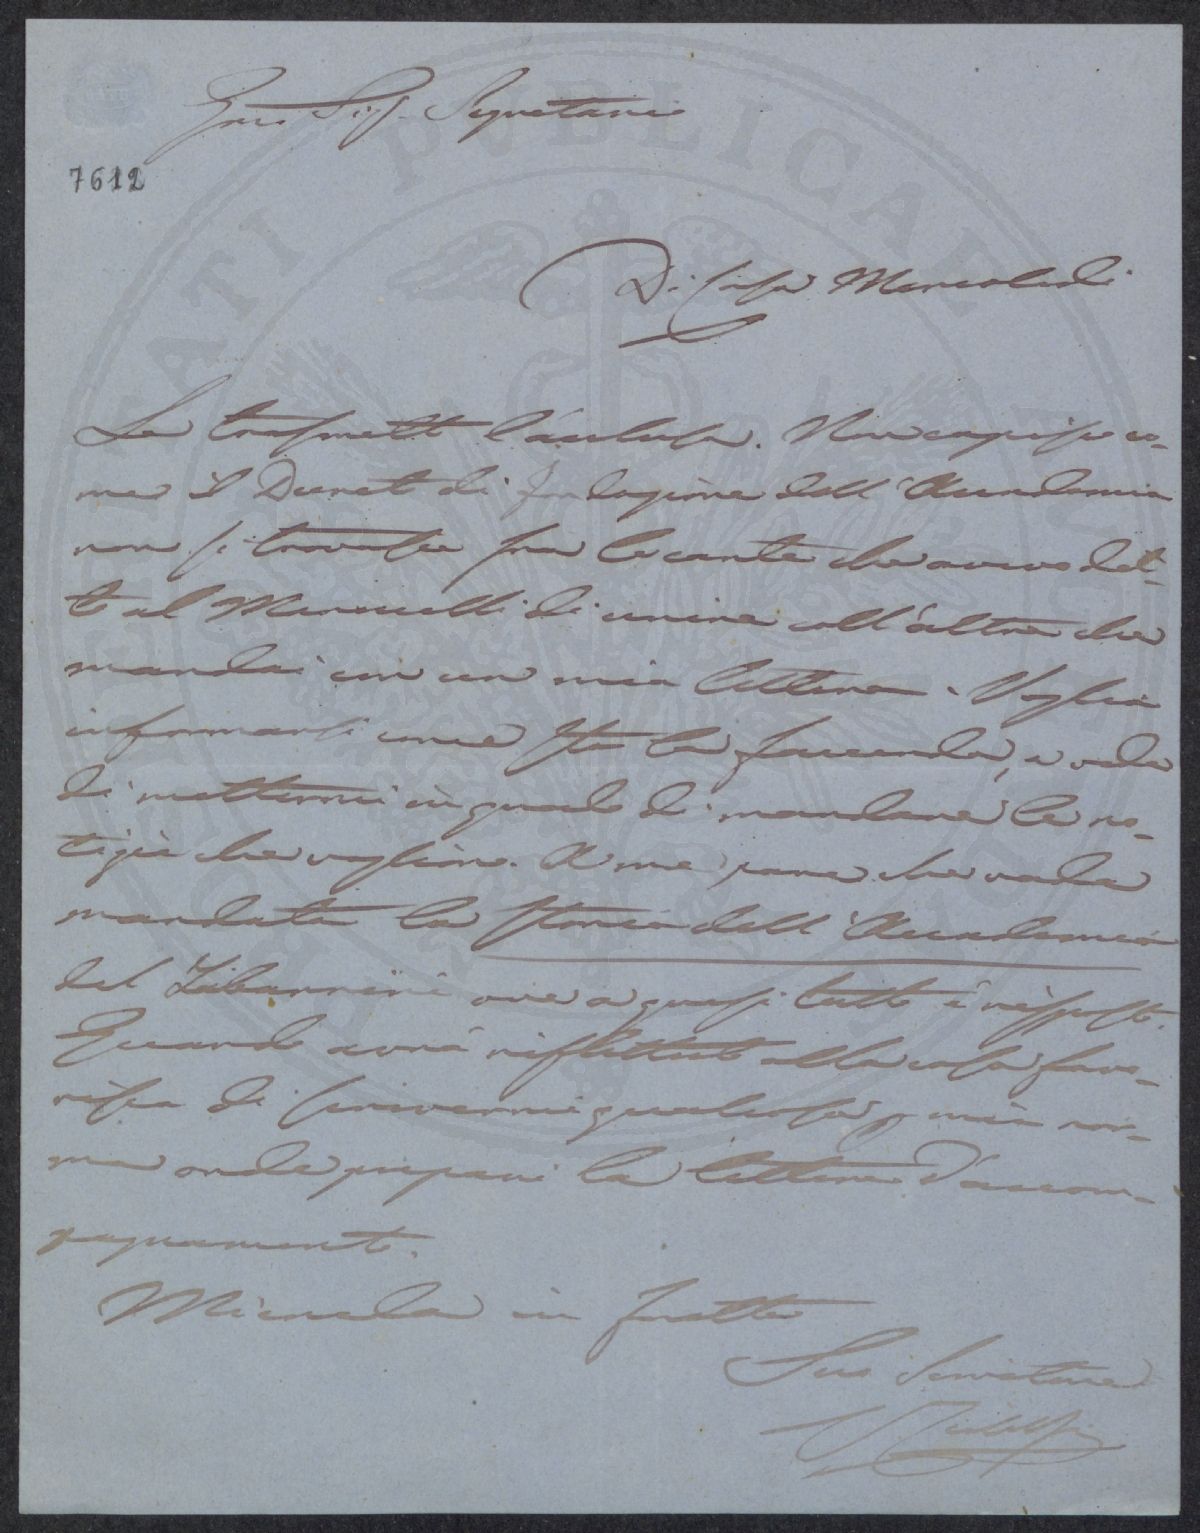 Sig. Segretario
7612
Di Casa Mercoledi
Le trasmetto l'acclusa. Non capisco co-
me il Decreto di fondazione dell'Accademia
non si trovasse fra le carte che avevo det-
to al Marucelli di unire coll'altre che
mandai con una mia lettera. Voglia
informarsi come sta la faccenda, e veda
di mettermi in grado di mandare le no-
tizie che vogliono. A me pare che vada
mandata la storia dell'Accademia
del Zibannini ove a quasi tutto è risposto.
Quando avrà riflettuto alla cosa favo-
risca di scrivermi qualcosa p mia nor-
ma onde prepari la lettera d'accom-
pagnamento.
Mi creda in fretta
Suo Servitore
Ridolfi